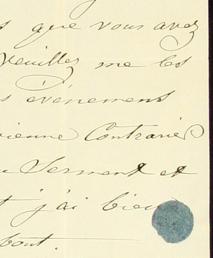 que vous avez
veuillez me les
évènement
vienne Contrarié
Serment et
j'ai bien
bout.